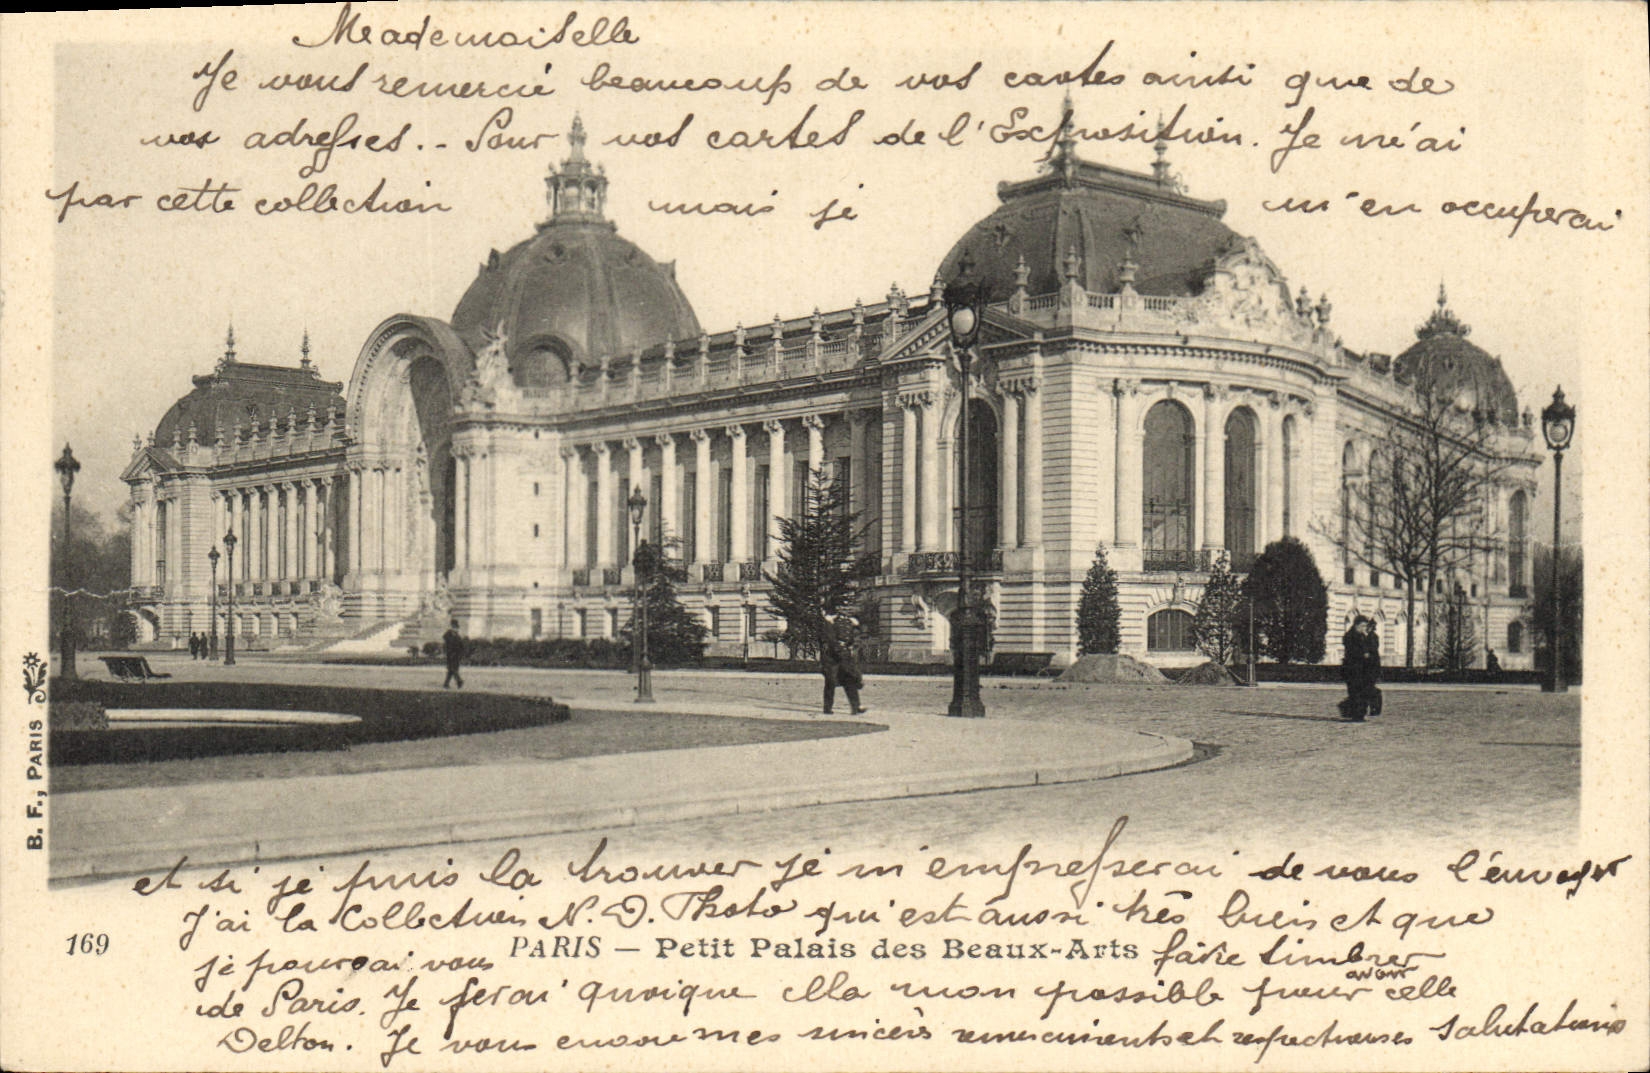 Meademoiselle
Je vous remercie beaucoup de vos cartes ainsi que de
vos adresses. - Pour vos cartes de l'Exposition. Je n'ai
par cette collection mais je m'en occuperai
et si je puis la trouver je m'empresserai de vous l'envoyer
J'ai la Collection N. D. Photo qui est aussi très bien et que
169 PARIS — Petit Palais des Beaux-Arts
je pourrai vous faire timbrer
de Paris. Je ferai quoique mon possible pour avoir celle
Delton. Je vous envoie mes sincères remerciements et respectueuses Salutations
B. F., PARIS